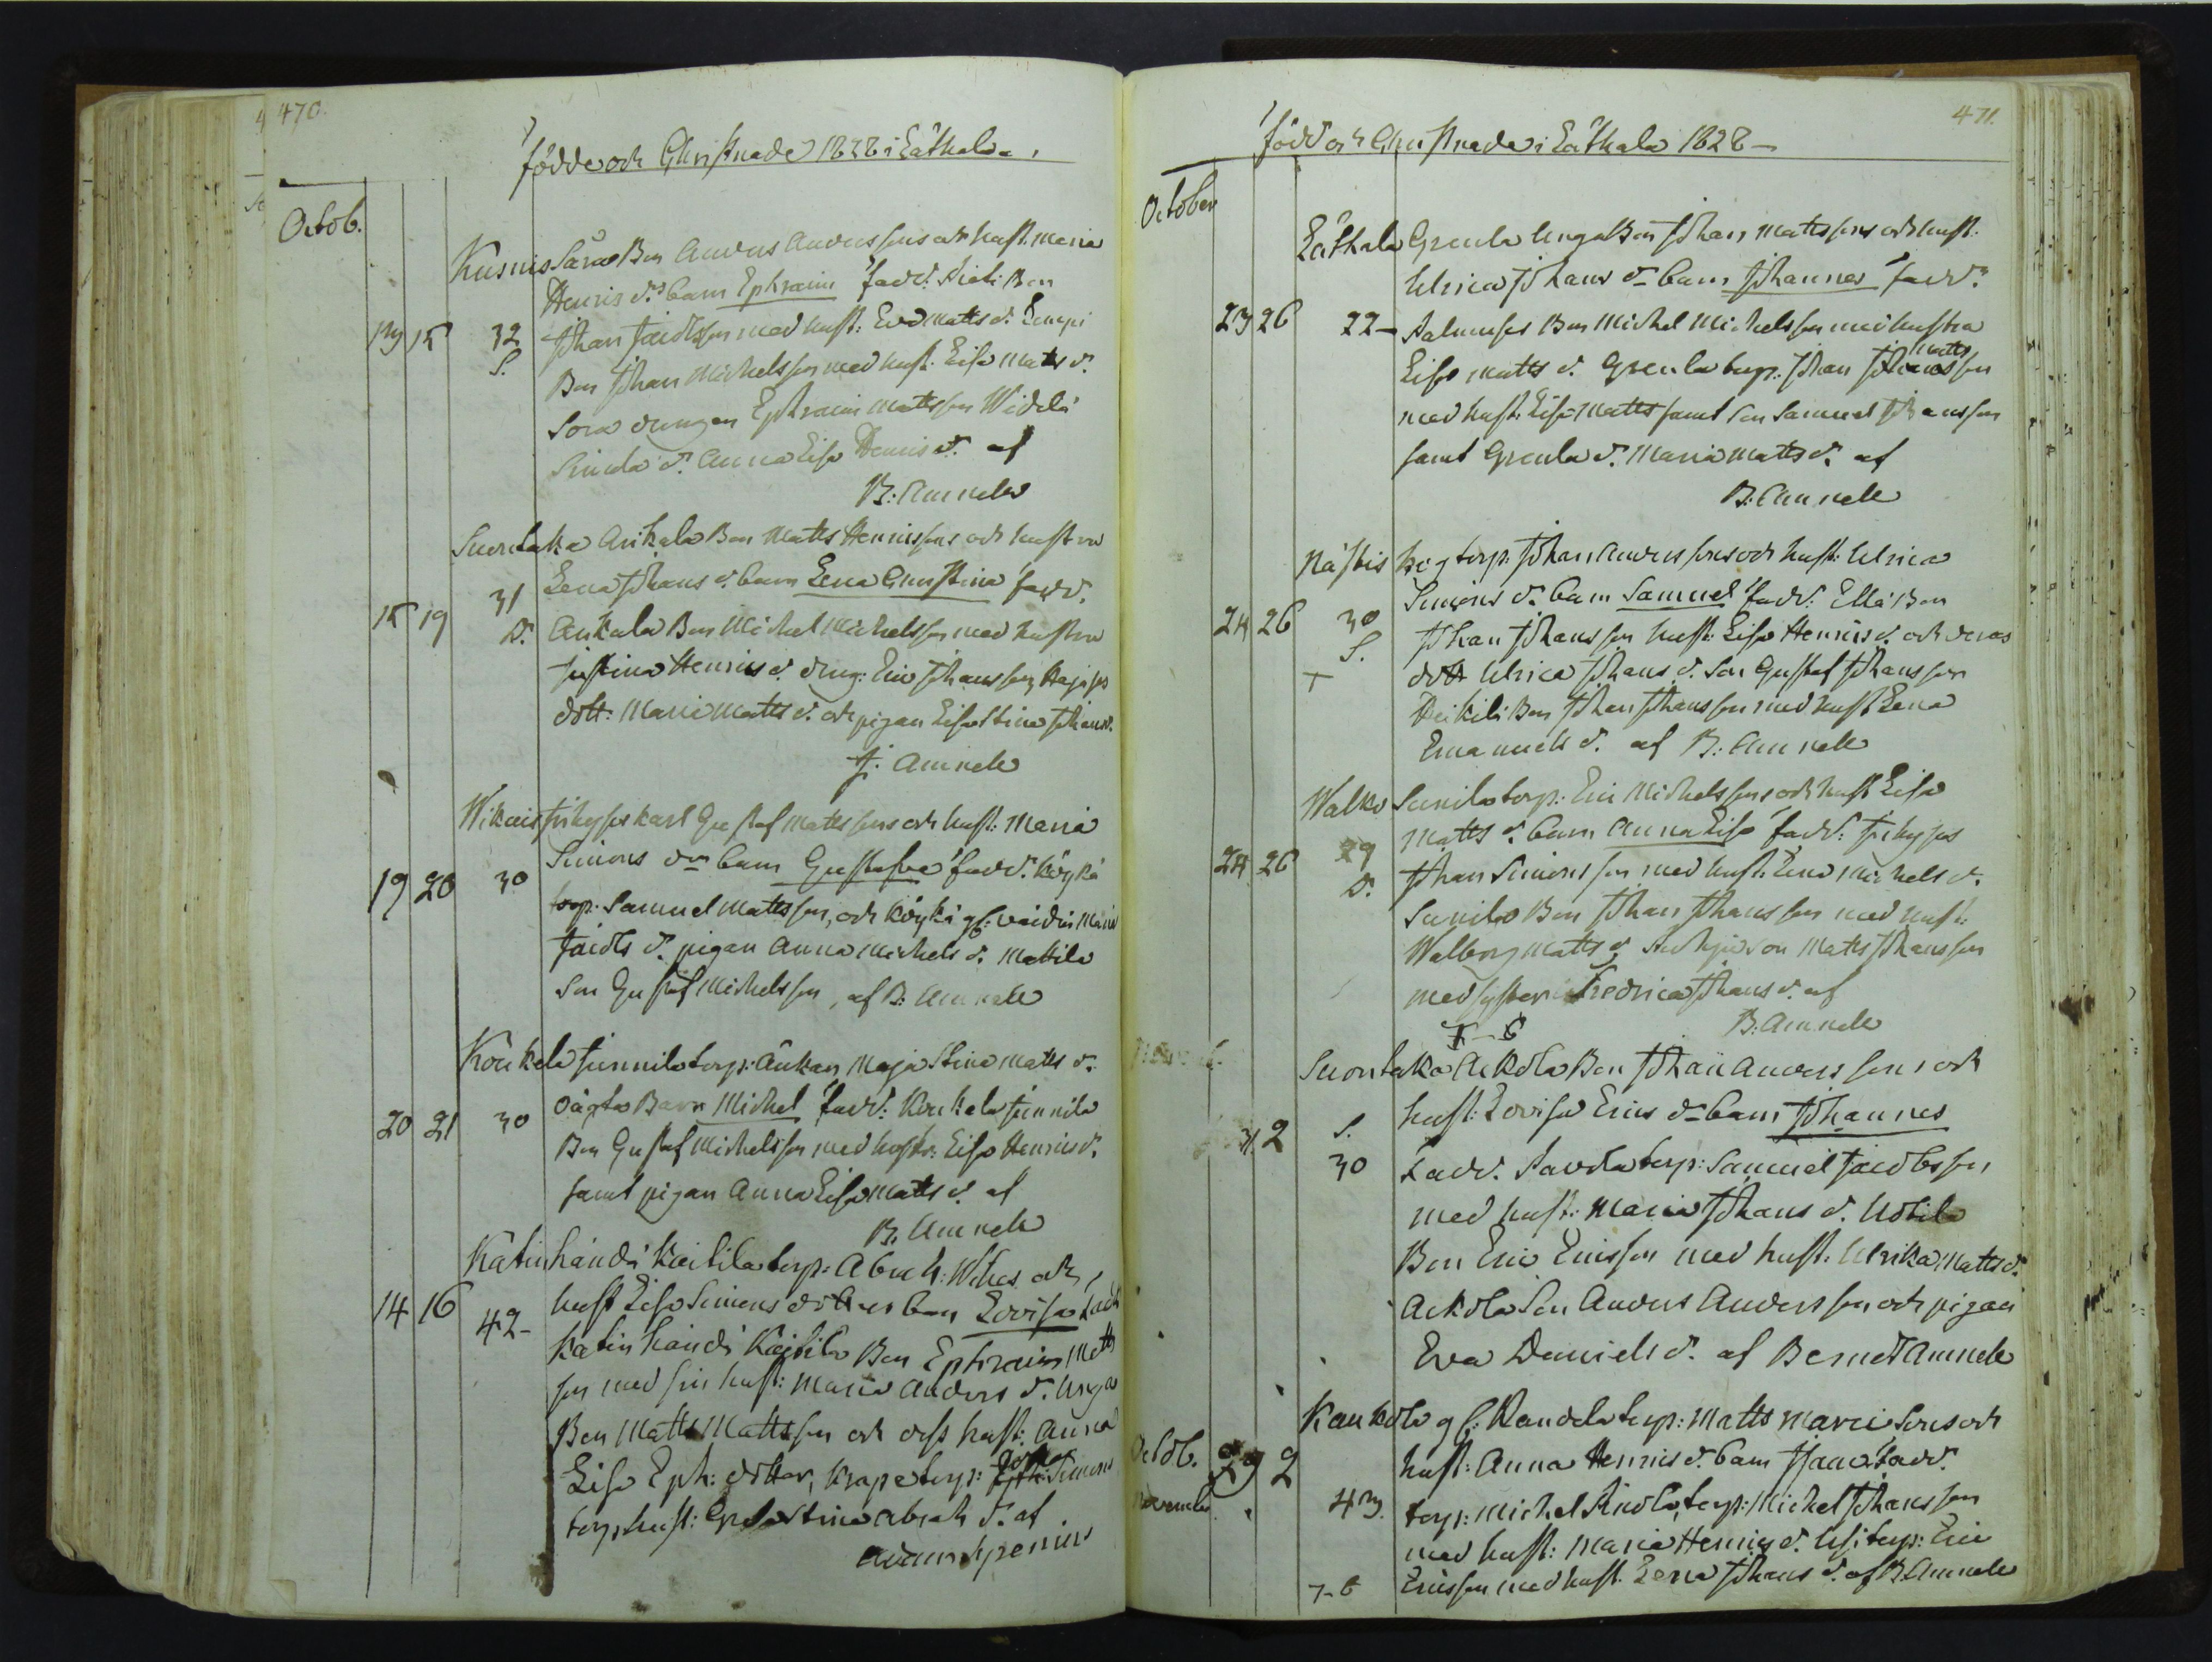 470.
födde och Christnade 1828 i Låthala.
Octob.
Kusnis Såra Bon Anders Anderssons och hust. Maria
Henris dr. barn Ephraim fadd.
13 15 32 Johan Jacobsson med hust: Eva Matts d. Lempi
S. Bon Johan Michelsson med hust. Lisa Matts d.
Sora drengen Ephraim Mattsson Widelä
d. Anna Lisa Henris d. af
B: Amnele
Suontaka Arikala Bon Matts Henrissons och hustru
31 Lena Johans d. barn Lena Christina fadd.
15 19 D. Arikala Bon Michel Michelsson med hustru
Justina Henris d. dreng: Eric Johansson
dott: Maria Matts d. och pigan Lisa Stina Johans d.
J. Amnele
Wikais karl Gustaf Mattssons och hust: Maria
Simons dr barn Gustafva fadd. Köykä
19 20 30
torp. Samuel Mattsson, och Köykä Maria
Jacobs d. pigan Anna Michels d. Mattila
Son Gustaf Michelsson, af B: Amnele
Koukela Junnila torp: Änkan Maja Stina Matts d.
20 21 30 oägta Barn Michel fadd: Koukela Junnila
Bon Gustaf Michelsson med hustr: Lisa Henris d.
samt pigan Anna Lisa Matts d. af
B. Amnele
Katinhändä Kaitila torp: Abrah: och
14 16 42- hust Lisa Simons dotters barn Lovisa fadd
Katinhändä Kaitila Bon Ephraim Matts
son med sin hust: Maria Anders d. Unga
Bon Matts Mattsson och dess hust: Anna
Lisa Eph: dotter, torp: Simons
torp. hust: Greta Stina Abrah d. af
471.
född och Christnade i Låthala 1828 –
October
Låthala Greula Unga Bon Johan Mattssons och hust.
Ulrica Johans d– barn Johannes fadd.
23 26 22– Bon Michel Michelsson med hustru
Lisa Matts d. Greula torp. Johan Matts son
med hust: Lisa Matts samt son Samuel Johansson
samt Greula d. Maria Matts d. af
B. Amnele
Nästis torp: Johan Anderssons och hust: Ulrica
Simons d. barn Samuel fadd: Ellä Bon
24 26 30 Johan Johansson hust: Lisa Henris d. och deras
S. dott Ulrica Johans d. Son Gustaf Johansson
Heikilä Bon Johan Johansson med hust Lena
Emanuels d. af B: Amnele
Walko Sunila torp: Eric Michelssons och hust Lisa
Matts d. barn Anna Lisa fadd:
24 26 29 Johan Simonsson med hust: Lena Michels d.
D. Sunila Bon Johan Johansson med hust:
Walborg Matts d. son Matts Johansson
med syster Fredrica Johans d. af
B. Amnele
Suontaka Ackola Bon Johan Anderssons och
31. 2 S. hust: Lovisa Erics d– barn Johannes
30 fadd. torp: Samuel Jacobsson
med hust: Maria Johans d. Uotila
Bon Eric Ericsson med hust: Ulrika Matts d.
Ackola Son Anders Andersson och pigan
Eva Daniels d. af Berndt Amnele
Kaukola Kandola torp: Matts sons och
Octob. 29 2 hust: Anna Henris d. barn Isaac fadd.
November 43. torp: Michel torp: Michel Johansson
med hust: Maria Henris d. torp: Eric
7-6 Ericsson med hust. Lena Johans d. af B. Amnele